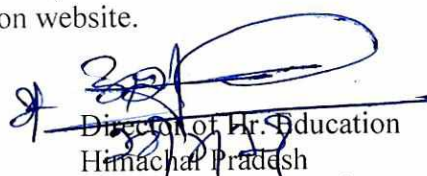 on website.
Director of Hr. Education
Himachal Pradesh